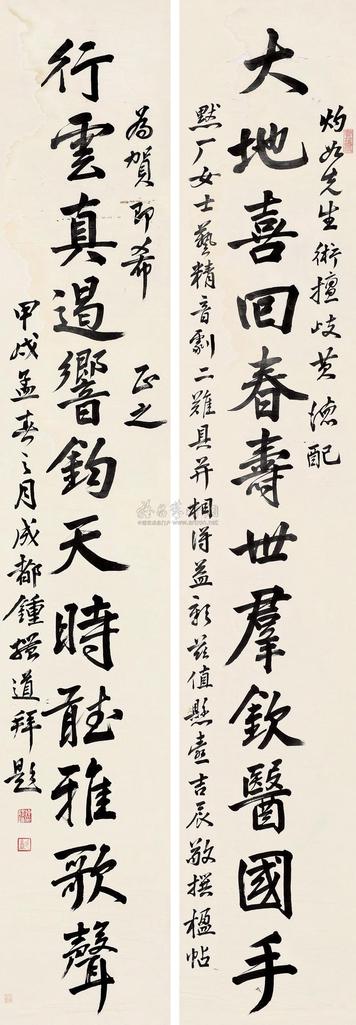 灼如先生術擅歧黄德配
大地喜回春壽世羣欽醫國手
默厂女士藝精音劇二難具并相得益彰茲值懸壺吉辰敬撰楹帖
為賀即希
正之
行雲真遏響鈞天時聽雅歌聲
甲戌孟春之月成都鍾 道拜題